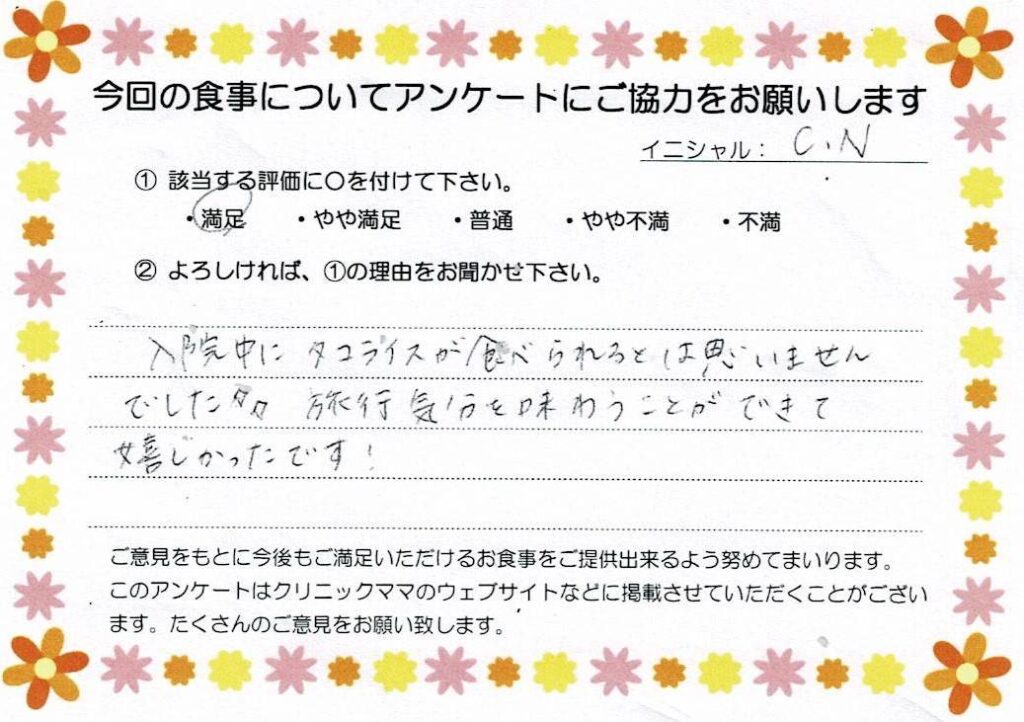 今回の食事についてアンケートにご協力をお願いします
イニシャル： C.N
① 該当する評価に〇を付けて下さい。
・満足 ・やや満足 ・普通 ・やや不満 ・不満
② よろしければ、①の理由をお聞かせ下さい。
入院中に タコライスが食べられるとは思いません
でした 旅行気分を味わうことができて
嬉しかったです！
ご意見をもとに今後もご満足いただけるお食事をご提供出来るよう努めてまいります。
このアンケートはクリニックママのウェブサイトなどに掲載させていただくことがござい
ます。たくさんのご意見をお願い致します。